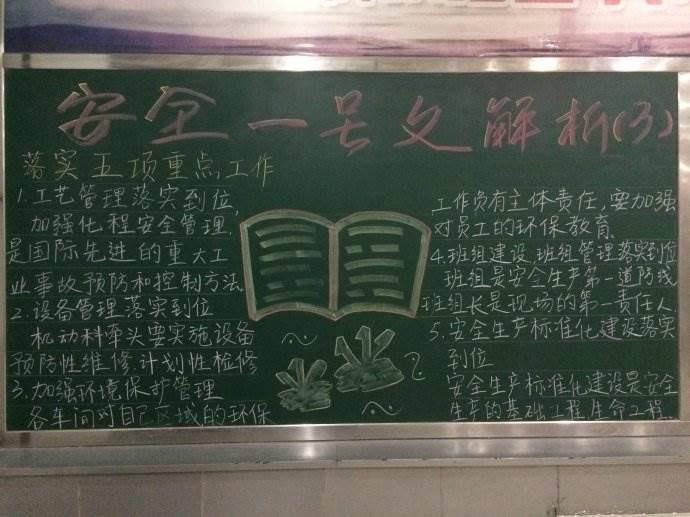 安全一号文解析(3)
落实五项重点工作
1.工艺管理落实到位,
加强化程安全管理,
是国际先进的重大工
业事故预防和控制方法
2.设备管理落实到位
机动科牵头要实施设备
预防性维修.计划性检修
3.加强环境保护管理
各车间对自己区域的环保
工作负有主体责任,要加强
对员工的环保教育.
4.班组建设.班组管理落实到位
班组是安全生产第一道防线
班组长是现场的第一责任人
5.安全生产标准化建设落实
到位
安全生产标准化建设是安全
生产的基础工程,生命工程.